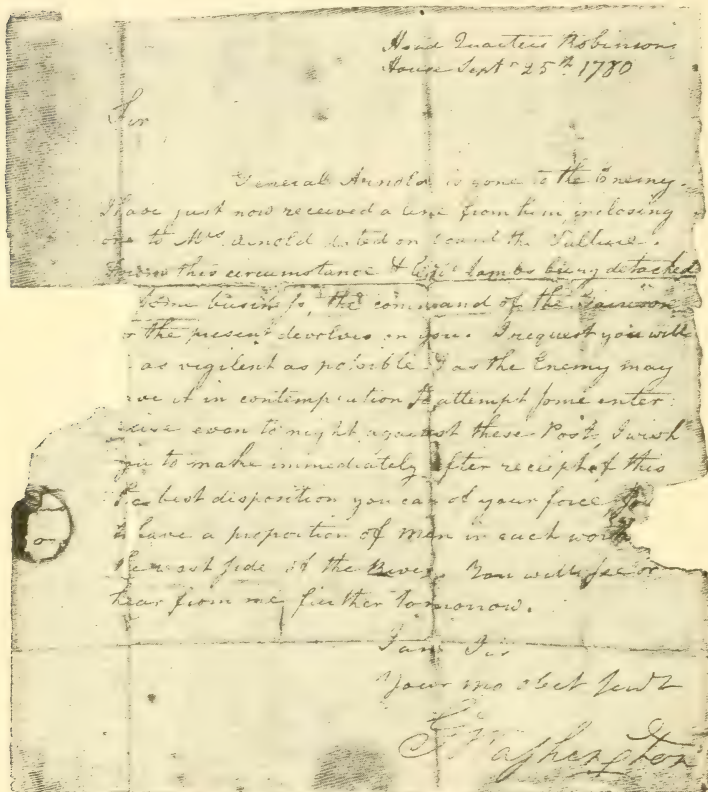 Head Quarters Robinsons
House Septr 25th 1780
Sir
General Arnold is gone to the Enemy.
I have just now received a line from him, inclosing
one to Mrs Arnold dated on board the Vulture.
From this circumstance & Colo Lambs being detached
some business, the command of the Garrison
for the present devolves on you. I request you will
as vigilent as possible & as the Enemy may
have it in contemplation to attempt some enter
prise even to night against these Posts, I wish
you to make immediately after receipt of this
the best disposition you can of your force, so
to have a proportion of men in each work
the west side of the River. You will see or
hear from me further tomorrow.
I am Sir
Your mo obedt servt
G Washington